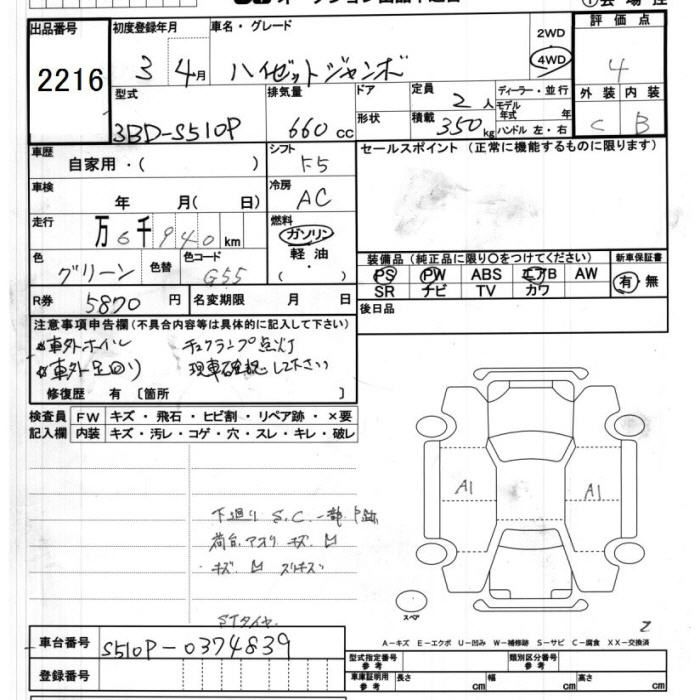 出品番号 初度登録年月 車名・グレード 2WD 評価点
2216 3 4月 ハイゼットジャンボ 4WD 4
型式 排気量 ドア 定員 2人 ディーラー・並行 外装 内装
3BD-S510P 660cc 形状 積載 350kg モデル年式 年 C B
ハンドル 左・右
車歴 シフト セールスポイント(正常に機能するものに限ります)
自家用・( ) F5
車検 冷房
年 月( 日) AC
走行 燃料
万6千940km ガソリン
色 色替 色コード 軽油
グリーン G55 ( ・ )
装備品(純正品に限り〇をつけてください) 新車保証書
PS PW ABS エアB AW 有・無
SR ナビ TV カワ
R券 5870円 名変期限 月 日 後日品
注意事項申告欄(不具合内容等は具体的に記入して下さい)
車外ホイル チェクランプ点灯
車外 現車確認して下さい
修復歴 有〔箇所 〕
検査員 FW キズ・飛石・ヒビ割・リペア跡・×要
記入欄 内装 キズ・汚レ・コゲ・穴・スレ・キレ・破レ
A1 A1
下廻り S.C. 一部P跡
荷台アオリ キズ凹
キズ 凹 スリキズ
STタイヤ
スペア
A-キズ E-エクボ U-凹み W-補修跡 S-サビ C-腐食 XX-交換済
車台番号 S510P-0374839
登録番号
型式指定番号 参考 類別区分番号 参考
車庫証明用 参考 長さ cm 幅 cm 高さ cm